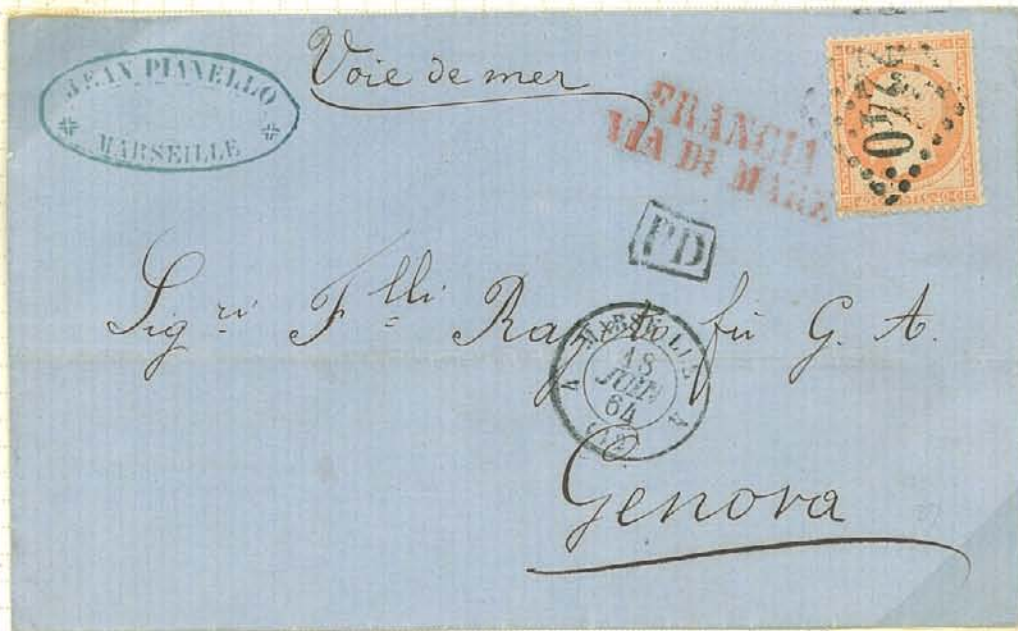 JEAN PIANELLO
MARSEILLE
Voie de mer
FRANCIA
VIA DI MARE
2240
PD
Sig ri F lli Raggio fu G. A.
MARSEILLE
18
JUIN
64
Genova